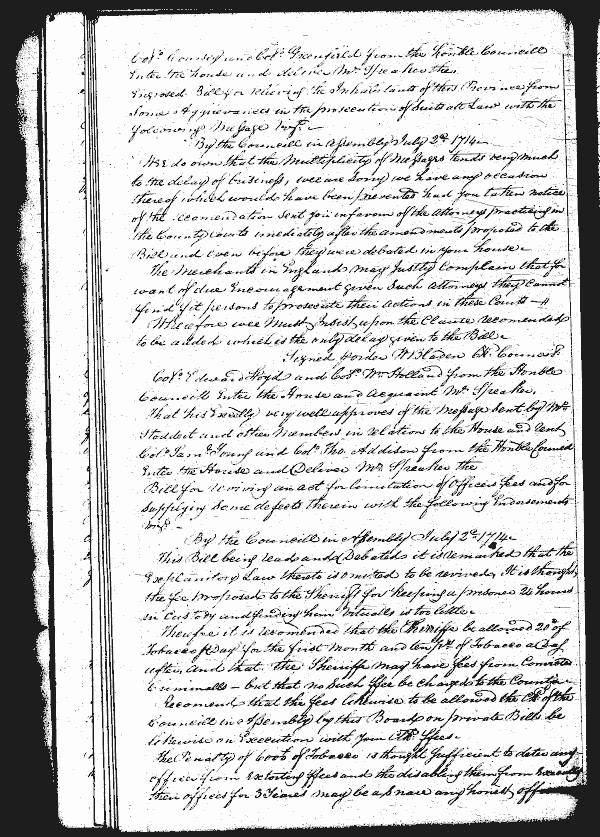 Col.º Coursey and Col.º Greenfield from the Honble Councill
Enter the house and deliver Mr. Speaker the
Engrosed Bill for relieving the Inhabitants of this Province from
some Aggrievances in the prosecution of Suits att Law with the
following Message Vizt.
By the Councill in Assembly July 2d. 1714
Wee do own that the Multiplicity of Messages tends very much
to the delay of business, wee are Sorry we have any occasion
thereof which would have been prevented had you taken notice
of the recomendation sent you in favour of the Attorneys practiceing in
the County Courts imediately after the amendments proposed to the
Bill and Even before they were debated in your house
The Merchants in England may Justly Complain that for
want of due Encouragement given Such Attorneys they Cannot
find fit persons to prosecute their Actions in these Courts
Wherefore wee Must Insist upon the Clause recomended
to be added which is the only delay given to the Bill
Signed p order W Bladen Cl. Councill
Col.º Edward Lloyd and Col.º Wm. Holland from the Honble
Councill Enter the House and acquaint Mr. Speaker,
That his Excelly very well approves of the Message Sent by Mr.
Stoddert and other Members in relation to the House and Tent
Col.º Saml. Young and Col.º Tho. Addison from the Honble Councill
Enter the House and Deliver Mr. Speaker the
Bill for reviving an act for Limitation of Officers fees and for
supplying Some defects therein with the following Endorsements
Vizt.
By the Councill in Assembly July 2d. 1714
This Bill being read and Debated it is remarked that the
Explanitory Law thereto is omitted to be revived, It is thought
the fee Proposed to the Sherriff for keeping a prisoner 24 hours
in Custody and finding him Victualls is too little
Therefore it is recomended that the Sherriffe be allowed 20lb of
Tobacco p Day for the first Month and ten lb of Tobacco a Day
after, and that the Sherriff may have fees from Convicted
Criminalls - but that no Such ffee be charged to the County
Recomend that the fees likewise to be allowed the Cl. of the
Councill in Assembly by this Board on private Bills be
likewise on Execution with your Cl. ffees.
The Penalty of 600lb of Tobacco is thought sufficient to deter any
officer from Extorting ffees and the disabling them from Executing
their offices for 3 Years may be a snare any honest officer